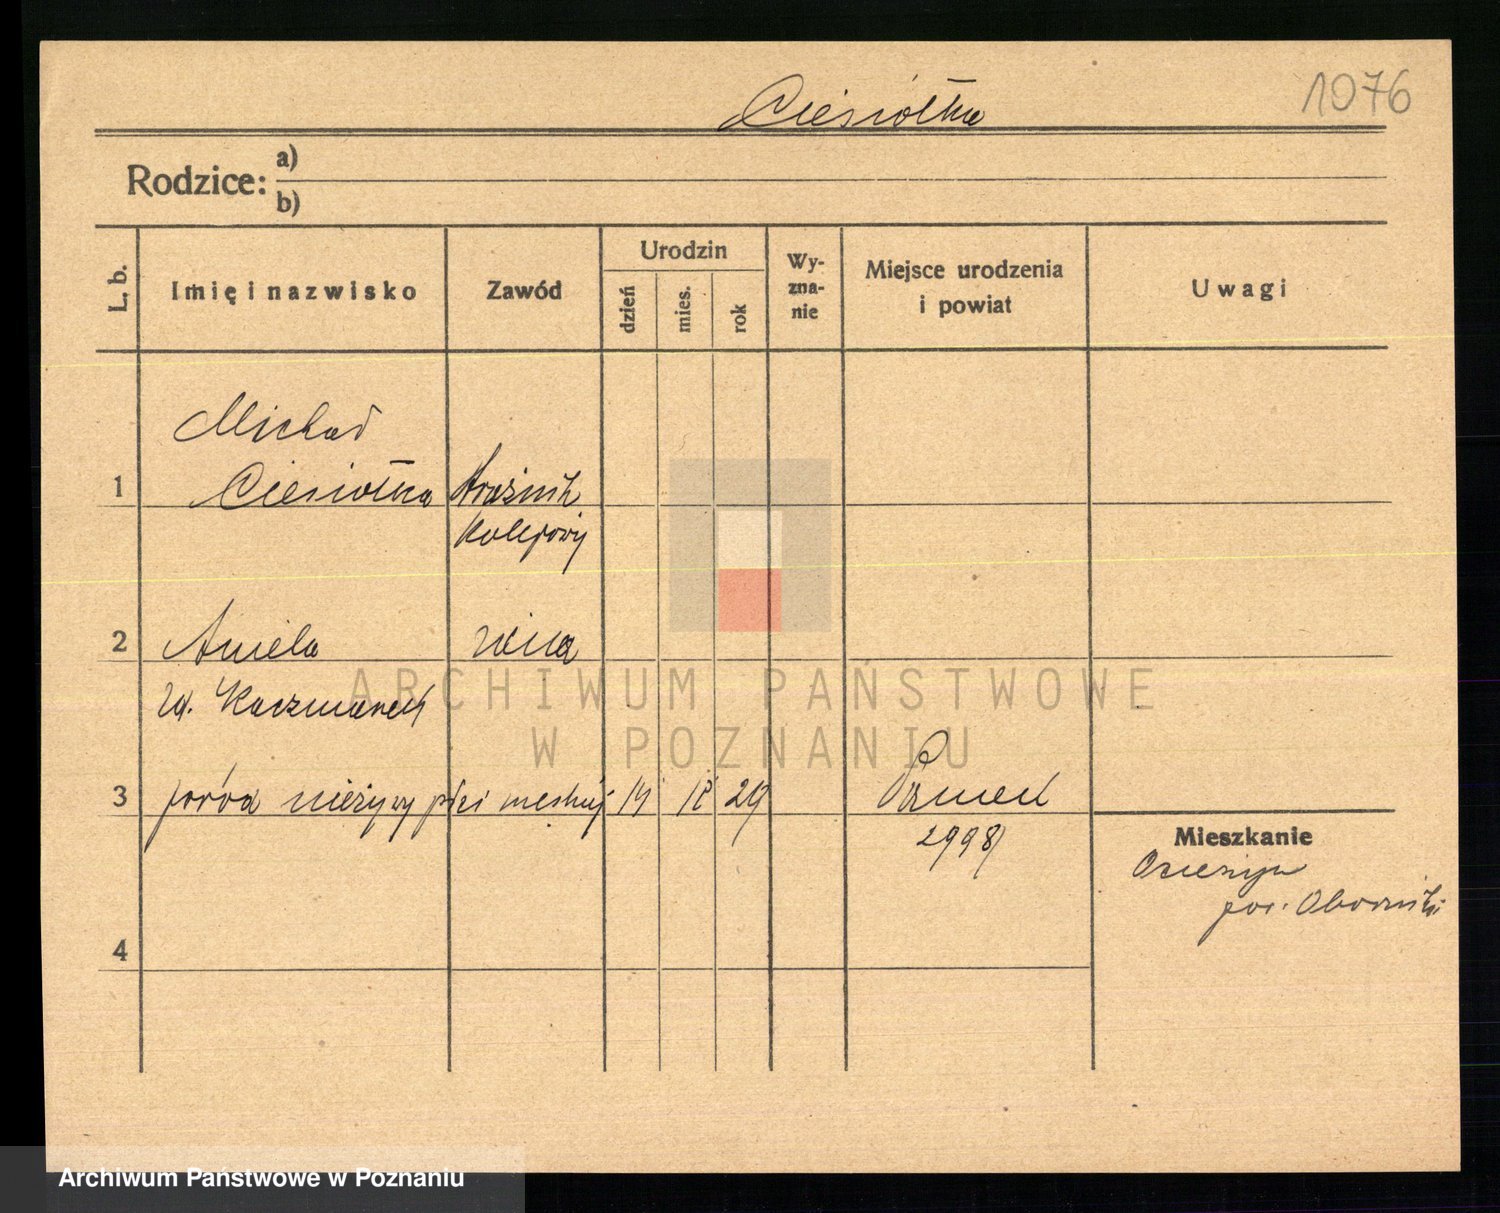 1076
Ciesiółka
Rodzice: a)
b)
L. b.
Imię i nazwisko
Zawód
Urodzin
dzień
mies.
rok
Wy-
zna-
nie
Miejsce urodzenia
i powiat
Uwagi
Michał
1 Ciesiołka Strażnik
Kolejowy
2 Aniela żona
zd. Kaczmarek
3 poród nieżywy płci męskiej 14 12 29 Poznań
2998/
Mieszkanie
pow. Obornicki
4
ARCHIWUM PAŃSTWOWE
W POZNANIU
Archiwum Państwowe w Poznaniu